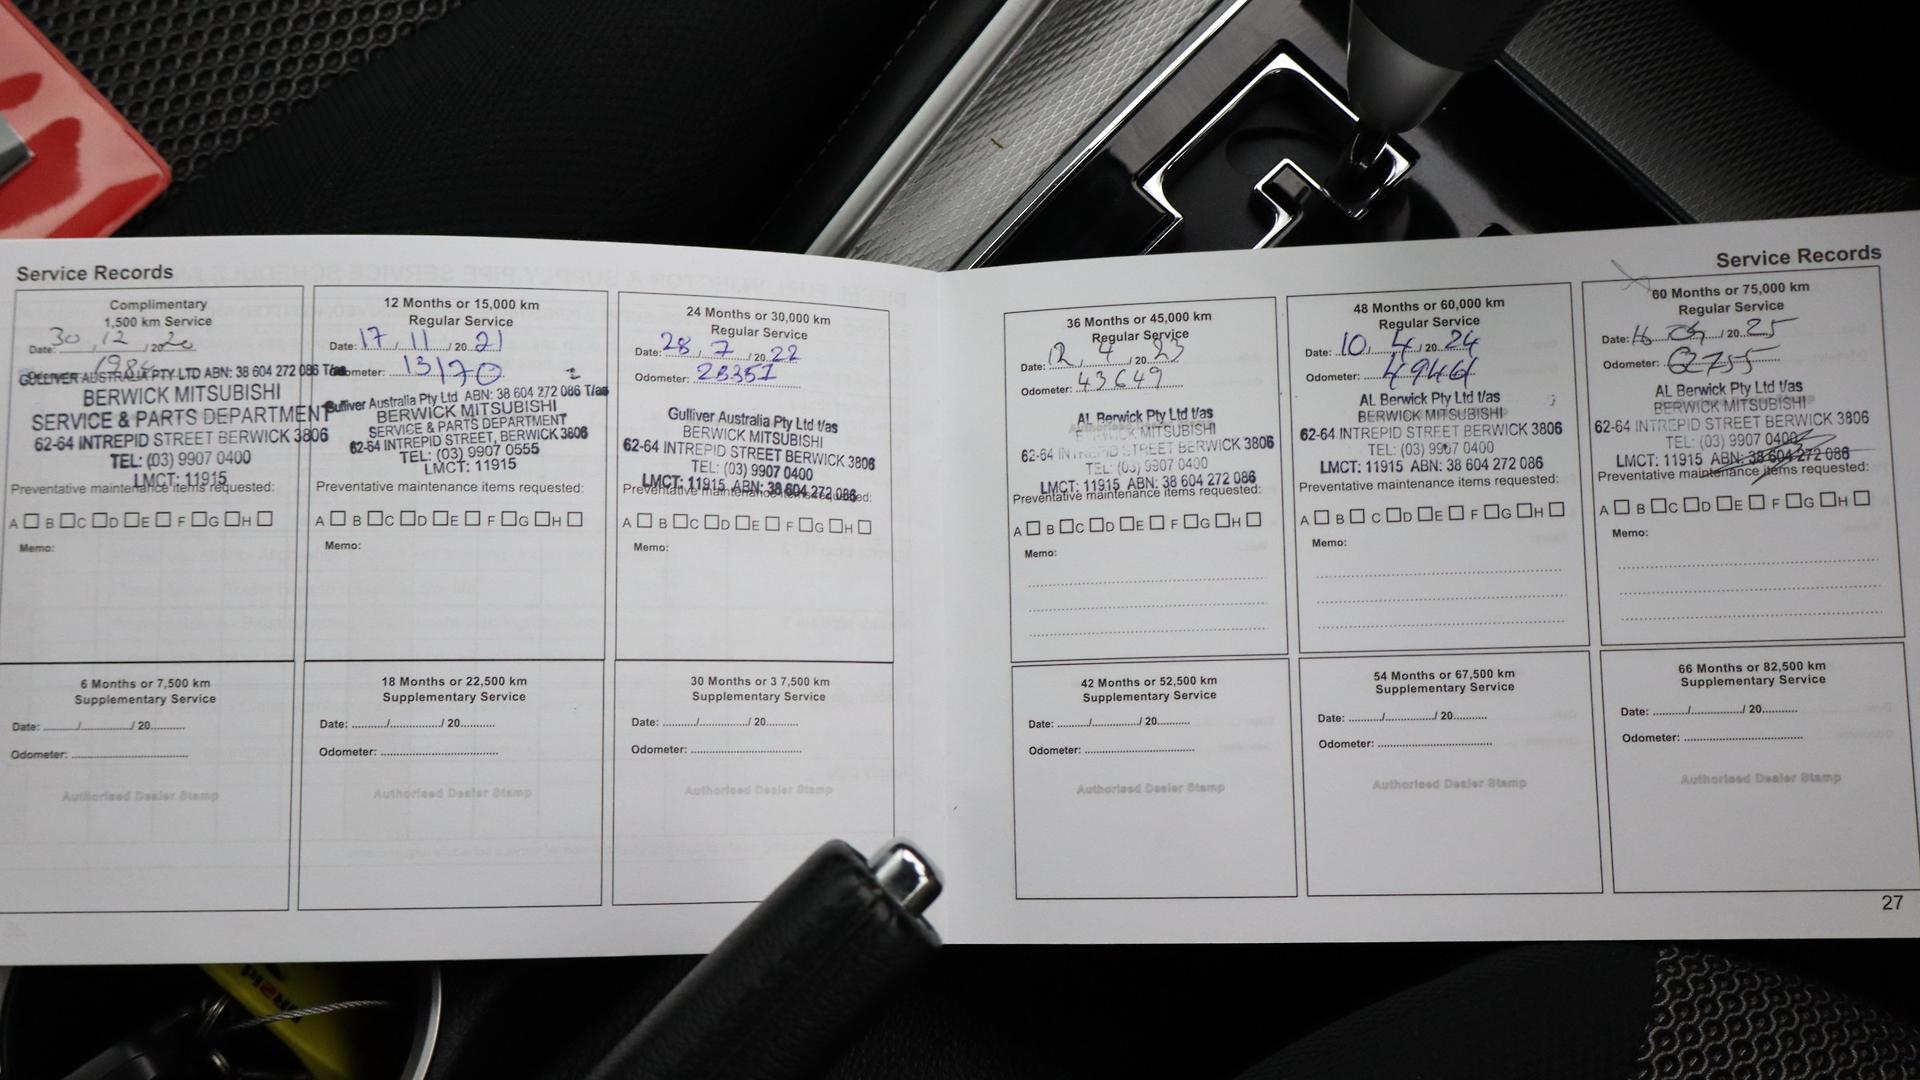 Service Records
Complimentary
1,500 km Service
Date: 30 / 12 / 20 20
GULLIVER AUSTRALIA PTY LTD ABN: 38 604 272 086 T/as
BERWICK MITSUBISHI
SERVICE & PARTS DEPARTMENT
62-64 INTREPID STREET BERWICK 3806
TEL: (03) 9907 0400
LMCT: 11915
Preventative maintenance items requested:
A B C D E F G H
Memo:
12 Months or 15,000 km
Regular Service
Date: 17 / 11 / 20 21
Odometer: 13170
Gulliver Australia Pty Ltd ABN: 38 604 272 086 T/as
BERWICK MITSUBISHI
SERVICE & PARTS DEPARTMENT
62-64 INTREPID STREET, BERWICK 3806
TEL: (03) 9907 0555
LMCT: 11915
Preventative maintenance items requested:
A B C D E F G H
Memo:
24 Months or 30,000 km
Regular Service
Date: 28 / 7 / 20 22
Odometer: 28351
Gulliver Australia Pty Ltd t/as
BERWICK MITSUBISHI
62-64 INTREPID STREET BERWICK 3806
TEL: (03) 9907 0400
LMCT: 11915 ABN: 38 604 272 086
Preventative maintenance items requested:
A B C D E F G H
Memo:
6 Months or 7,500 km
Supplementary Service
Date: ....../............/ 20..........
Odometer:
Authorised Dealer Stamp
18 Months or 22,500 km
Supplementary Service
Date: ....../............/ 20..........
Odometer:
Authorised Dealer Stamp
30 Months or 3 7,500 km
Supplementary Service
Date: ....../............/ 20..........
Odometer:
Authorised Dealer Stamp
Service Records
36 Months or 45,000 km
Regular Service
Date: 12 / 4 / 20 23
Odometer: 43649
AL Berwick Pty Ltd t/as
BERWICK MITSUBISHI
62-64 INTREPID STREET BERWICK 3806
TEL: (03) 9907 0400
LMCT: 11915 ABN: 38 604 272 086
Preventative maintenance items requested:
A B C D E F G H
Memo:
48 Months or 60,000 km
Regular Service
Date: 10 / 4 / 20 24
Odometer:
AL Berwick Pty Ltd t/as
BERWICK MITSUBISHI
62-64 INTREPID STREET BERWICK 3806
TEL: (03) 9907 0400
LMCT: 11915 ABN: 38 604 272 086
Preventative maintenance items requested:
A B C D E F G H
Memo:
60 Months or 75,000 km
Regular Service
Date: 16 / / 20 25
Odometer: 62755
AL Berwick Pty Ltd t/as
BERWICK MITSUBISHI
62-64 INTREPID STREET BERWICK 3806
TEL: (03) 9907 0400
LMCT: 11915 ABN: 38 604 272 086
Preventative maintenance items requested:
A B C D E F G H
Memo:
42 Months or 52,500 km
Supplementary Service
Date: ....../............/ 20..........
Odometer:
Authorised Dealer Stamp
54 Months or 67,500 km
Supplementary Service
Date: ....../............/ 20..........
Odometer:
Authorised Dealer Stamp
66 Months or 82,500 km
Supplementary Service
Date: ....../............/ 20..........
Odometer:
Authorised Dealer Stamp
27